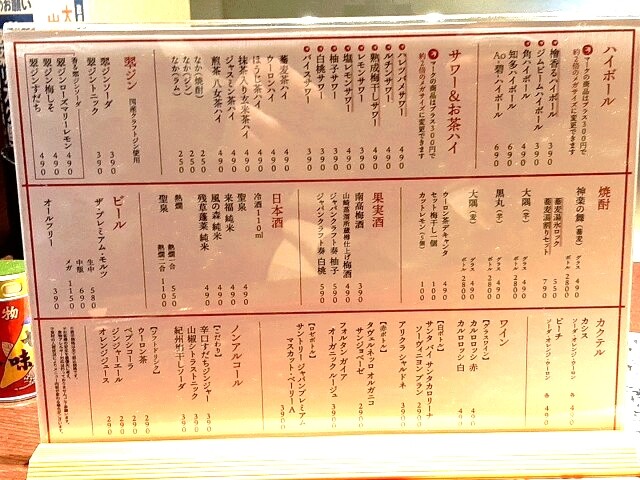 ハイボール
マークの商品はプラス300円で
約2倍のメガサイズに変更できます
檜香るハイボール 390
ジムビームハイボール 390
角ハイボール 490
知多ハイボール 690
Ao碧ハイボール 690
サワー&お茶ハイ
マークの商品はプラス300円で
約2倍のメガサイズに変更できます
ハレツメサワー 490
ルチンサワー 490
熟成梅干しサワー 490
レモンサワー 390
塩レモンサワー 490
柚子サワー 490
白桃サワー 490
バイスサワー 390
蕎麦茶ハイ 490
ウーロンハイ 490
ほうじ茶ハイ 490
抹茶入り玄米茶ハイ 490
ジャスミン茶ハイ 490
煎茶 八女茶ハイ 490
なか(焼酎) 250
なか(ジン) 250
なか(ラム) 250
翠ジン
国産クラフトジン使用
翠ジンソーダ 390
翠ジントニック 390
香る郷シンソーダ
翠ジンローズマリーレモン 490
翠ジン梅しそ 490
翠ジンすだち 490
焼酎
神楽の舞(蕎麦) グラス 490
ボトル 2800
蕎麦湯氷ロック 550
蕎麦湯割りセット 790
大隅(芋) グラス 490
ボトル 2800
黒丸(芋) グラス 490
ボトル 2800
大隅(麦) グラス 490
ボトル 2800
ウーロン茶デキャンタ 490
セット梅干し一個 100
カットレモン 100
果実酒
南高梅酒 390
山崎蒸溜所蔵樽仕上げ梅酒 490
ジャパンクラフト奏 柚子 590
ジャパンクラフト奏 白桃 590
日本酒
冷酒110ml
聖泉 490
来福 純米 490
風の森 純米 490
残草蓬莱 純米 490
熱燗
聖泉 熱燗 550
熱燗二合 1100
ビール
ザ・プレミアム・モルツ 生中 580
中瓶 690
メガ 1150
オールフリー 390
カクテル
カシス
ソーダ・オレンジ・ウーロン 各 490
ピーチ
ソーダ・オレンジ・ウーロン 各 490
ワイン
【グラスワイン】
カルロロッシ 赤 490
カルロロッシ 白 490
【白ボトル】
サンタ バイ サンタカロリーナ
ソーヴィニヨン ブラン 2900
アリックラ シャルドネ 3900
【赤ボトル】
タヴェルネッロ オルガニコ
サンジョベーゼ 2900
フォルタン ガイア
オーガニック ルージュ 3900
【ロゼボトル】
サントリー ジャパンプレミアム
マスカット・ベーリーA 3900
ノンアルコール
【こだわり】
辛口すだちジンジャー 390
山椒シトラストニック 390
紀州梅干しソーダ 390
【ソフトドリンク】
ウーロン茶 290
ペプシコーラ 290
ジンジャーエール 290
オレンジジュース 290